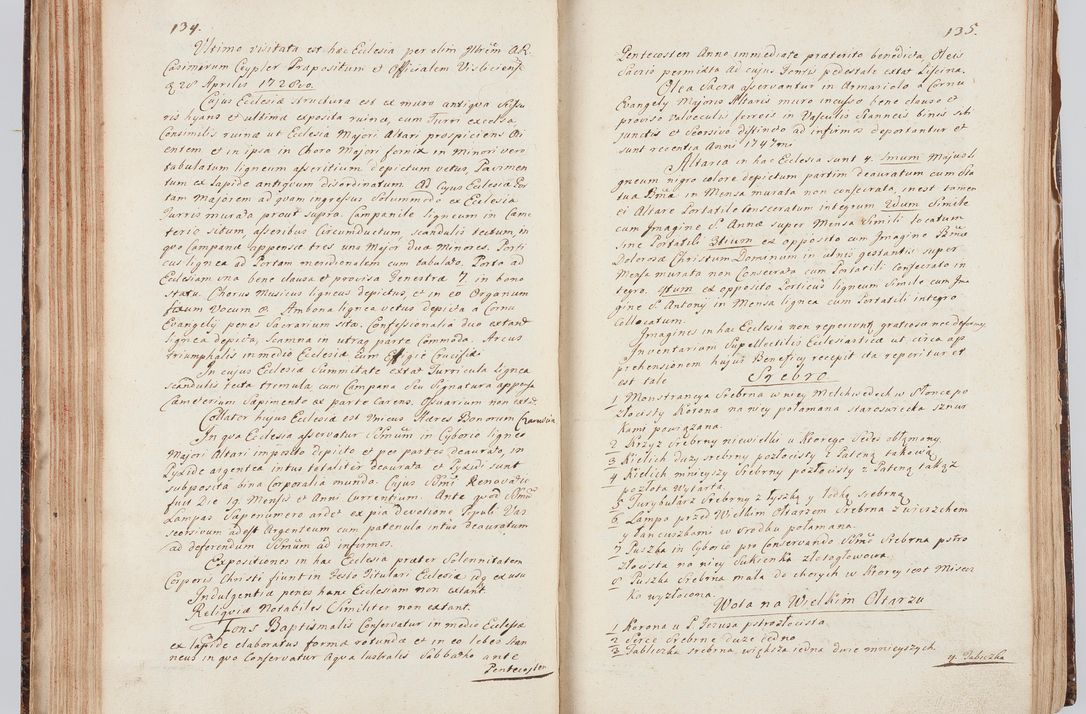 134.
Ultimo visitata est hæc Ecclesia per olim Illrem AR.
Casimirum Ceypler Præpositum et Officialem Visliciens
Aprilis 1728vo.
Cujus Ecclesiæ structura est ex muro antiqua
ris hyans et ultimæ exposita ruinæ, cum Turri excelsa
Consimilis ruinæ ut Ecclesia Majori Altari prospiciens Ori
entem et in ipsa in Choro Majori fornix in Minori vero
tabulatum ligneum asseritium depictum vetus, Pavimen
tum ex lapide antiquum disordinatum. Ad Cujus Ecclesiæ Por
tam Majorem ad quam ingressus Solummodo ex Ecclesia
Turris murata prout supra. Campanile ligneum in Cæme
terio situm, asseribus Circumductum scandulis tectum, in
quo Campanæ appensæ tres una Major duæ Minores. Porti
cus lignea ad Portam meridionalem cum tabulato. Porta ad
Ecclesiam una bene clausa et provisa Fenestræ 7. in bono
statu. Chorus Musicus ligneus depictus, et in eo Organum
Vocum 8. Ambona lignea vetus depicta à Cornu
Evangelij penes Sacrarium sita. Confessionalia duo extant
lignea depicta, Scamna in utraq parte Commoda. Arcus
triumphalis in medio Ecclesiæ cum Effigie Crucifixi
In cujus Ecclesiæ Summitate extat Turricula lignea
scandulis tecta tremula cum Campana seu Signatura appensa
Cæmeterium Sapimento ex parte carens. Ossarium non extat
Collator hujus Ecclesiæ est Unicus Hæres Bonorum
In qua Ecclesia asservatur SSmum in Cyborio ligneo
Majori Altari imposito depicto et per partes deaurato, in
Pyxide argentea intus totaliter deaurata et Pyxidi sunt
subposita bina Corporalia munda. Cujus SSmi Renovatio
fuit Die 19. Mensis et Anni Currentium. Ante quod SSmum
Lampas Sæpenumero ardet ex pia devotione Populi Vas
seorsivum adest Argenteum cum patenula intus deauratum
ad deferendum SSmum ad infirmos.
Expositiones in hac Ecclesia præter Solennitatem
Corporis Christi fiunt in Festo Titulari Ecclesiæ idq ex usu
Indulgentiæ penes hanc Ecclesiam non extant.
Reliquiæ Notabiles Similiter non extant.
Fons Baptismalis Conservatur in medio Ecclesiæ
ex lapide elaboratus formâ rotundâ et in eo lebes Stan
neus in quo Conservatur Aqua lustralis Sabbatho ante
Pentecosten
135.
Pentecosten Anno immediate præterito benedicta, Oleis
Sacris permixta ad cujus Fontis pedestale extat Piscina.
Olea Sacra asservantur in Armariolo à Cornu
Evangelij Majoris Altaris muro incusso bene clauso et
proviso valveculis ferreis in Vasculis Stanneis binis sibi
junctis et seorsivo distincto ad infirmos deportantur et
sunt recentia Anni 1747mi
Altaria in hac Ecclesia sunt 4. 1mum Majus li
gneum nigro colore depictum partim deauratum cum Sta
tua Bmæ in Mensa murata non consecrata, inest tamen
ei Altare Portatile Consecratum integrum 2dum Simile
cum Imagine S. Annæ super Mensa Simili locatum
sine Portatili 3tium ex opposito cum Imagine Bmæ
Dolorosæ Christum Dominum in ulnis gestantis super
Mensa murata non Consecrata cum Portatili consecrato in
tegro. 4tum ex opposito Porticus ligneum Simile cum Ima
gine S. Antonij in Mensa lignea cum Portatili integro
Collocatum.
Imagines in hac Ecclesia non reperiunt gratiosæ nec
Inventarium Supellectilis Ecclesiasticæ ut circa ap
prehensionem hujus Beneficij recepit ita reperitur et
est tale Srebro
1 Monstrancya Srebrna w niey Melchisedech w Słońce po
złocisty Korona na niey połamana staroswiecka sznur
kami powiązana.
2 Krzyż srebrny niewielki u Ktorego Pedes obłamany.
3 Kielich duży srebrny pozłocisty z Pateną takową
4 Kielich mnieyszy Srebrny pozłocisty z Pateną takąż
pozłota wytarta.
5 Turybularz Srebrny z łyszką y łodką srebrną
6 Lampa przed Wielkim Ołtarzem Srebrna z wierzchem
y łancuszkami w srodku połamana.
7 Puszka in Cyborio pro Conservando SSmo Srebrna pstro
złocista na niey Sukienka złotogłowowa
8 Puszka Srebrna mała do chorych w Ktorey iest Misecz
ka wyzłocona.
Wota na Wielkim Ołtarzu
1 Korona u P. Jezusa pstrozłocista
2 Serce Srebrne duże jedno
3 Tabliczka srebrna większa iedna dwie mnieyszych
4. Tabliczka